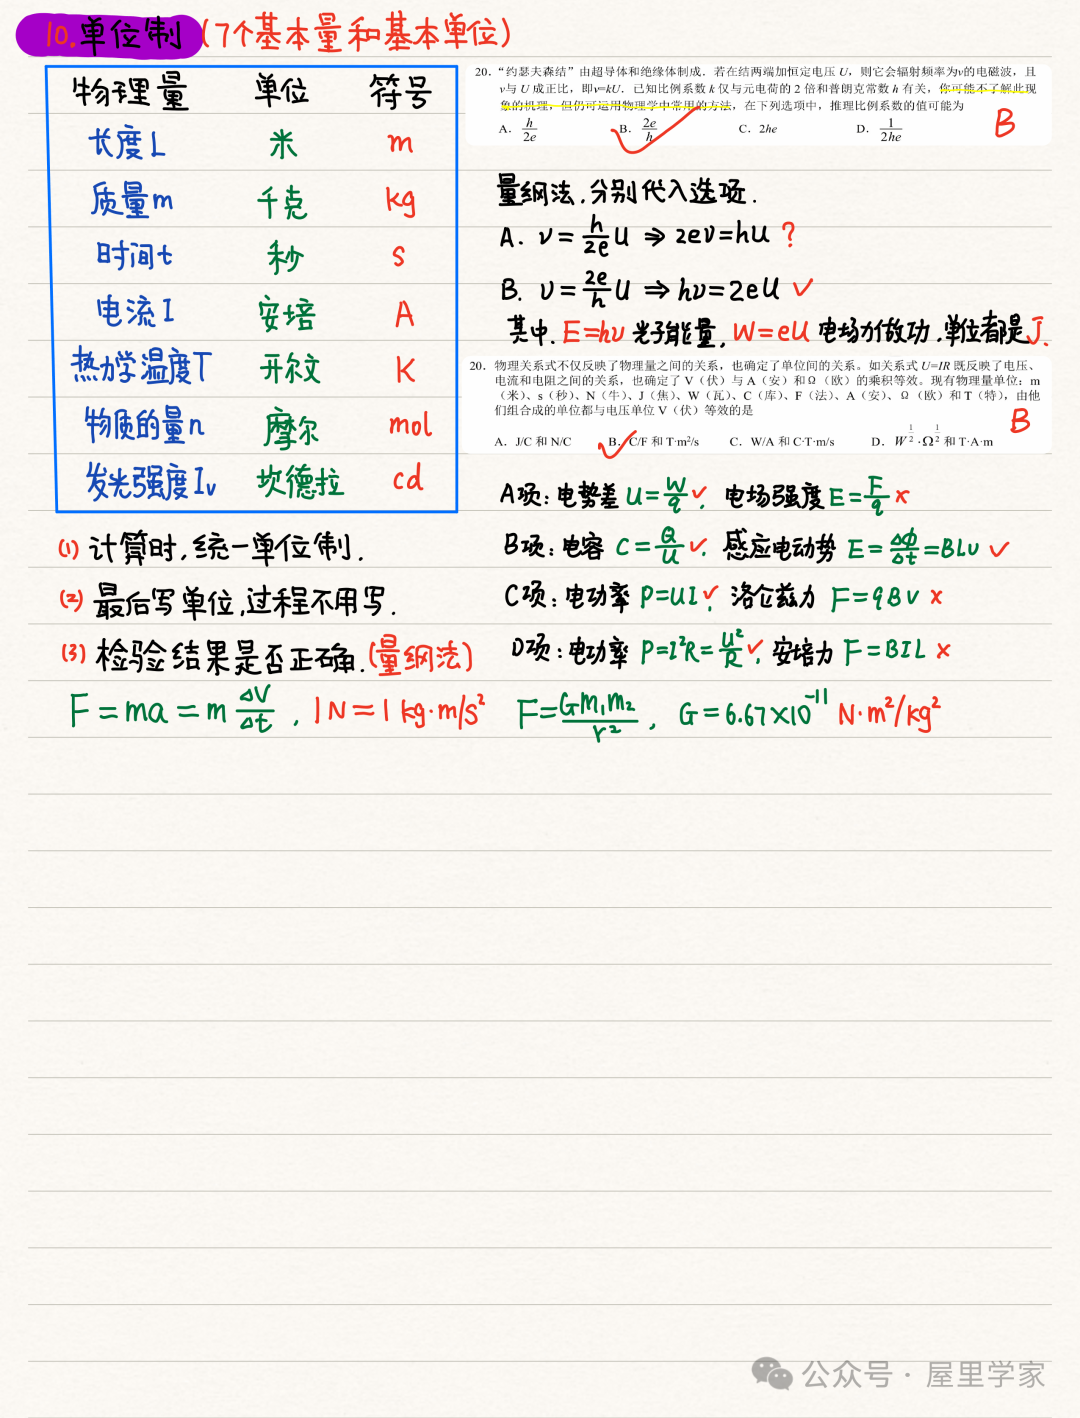 10.单位制(7个基本量和基本单位)
物理量 单位 符号
长度L 米 m
质量m 千克 kg
时间t 秒 s
电流I 安培 A
热力学温度T 开尔文 K
物质的量n 摩尔 mol
发光强度Iv 坎德拉 cd
(1) 计算时,统一单位制.
(2) 最后写单位,过程不用写.
(3) 检验结果是否正确.(量纲法)
F=ma=m ΔV/Δt , 1N=1kg·m/s²
20．“约瑟夫森结”由超导体和绝缘体制成．若在结两端加恒定电压 U，则它会辐射频率为ν的电磁波，且
ν与 U 成正比，即ν=kU．已知比例系数 k 仅与元电荷的 2 倍和普朗克常数 h 有关，你可能不了解此现
象的机理，但仍可运用物理学中常用的方法，在下列选项中，推理比例系数的值可能为
A．h/2e B．2e/h C．2he D．1/2he
B
量纲法.分别代入选项.
A. ν=h/2e U ⇒ 2eν=hU ?
B. ν=2e/h U ⇒ hν=2eU ✓
其中.E=hν 光子能量,W=eU 电场力做功.单位都是J.
20．物理关系式不仅反映了物理量之间的关系，也确定了单位间的关系。如关系式 U=IR 既反映了电压、
电流和电阻之间的关系，也确定了 V（伏）与 A（安）和 Ω（欧）的乘积等效。现有物理量单位：m
（米）、s（秒）、N（牛）、J（焦）、W（瓦）、C（库）、F（法）、A（安）、Ω（欧）和 T（特），由他
们组合成的单位都与电压单位 V（伏）等效的是
B
A．J/C 和 N/C B．C/F 和 T·m²/s C．W/A 和 C·T·m/s D．W^(1/2)·Ω^(1/2) 和 T·A·m
A项:电势差 U=W/q ✓. 电场强度 E=F/q ×
B项:电容 C=Q/U ✓. 感应电动势 E=ΔΦ/Δt=BLv ✓
C项:电功率 P=UI ✓. 洛仑兹力 F=qBv ×
D项:电功率 P=I²R=U²/R ✓. 安培力 F=BIL ×
F=Gm₁m₂/r² , G=6.67×10⁻¹¹ N·m²/kg²
公众号·屋里学家